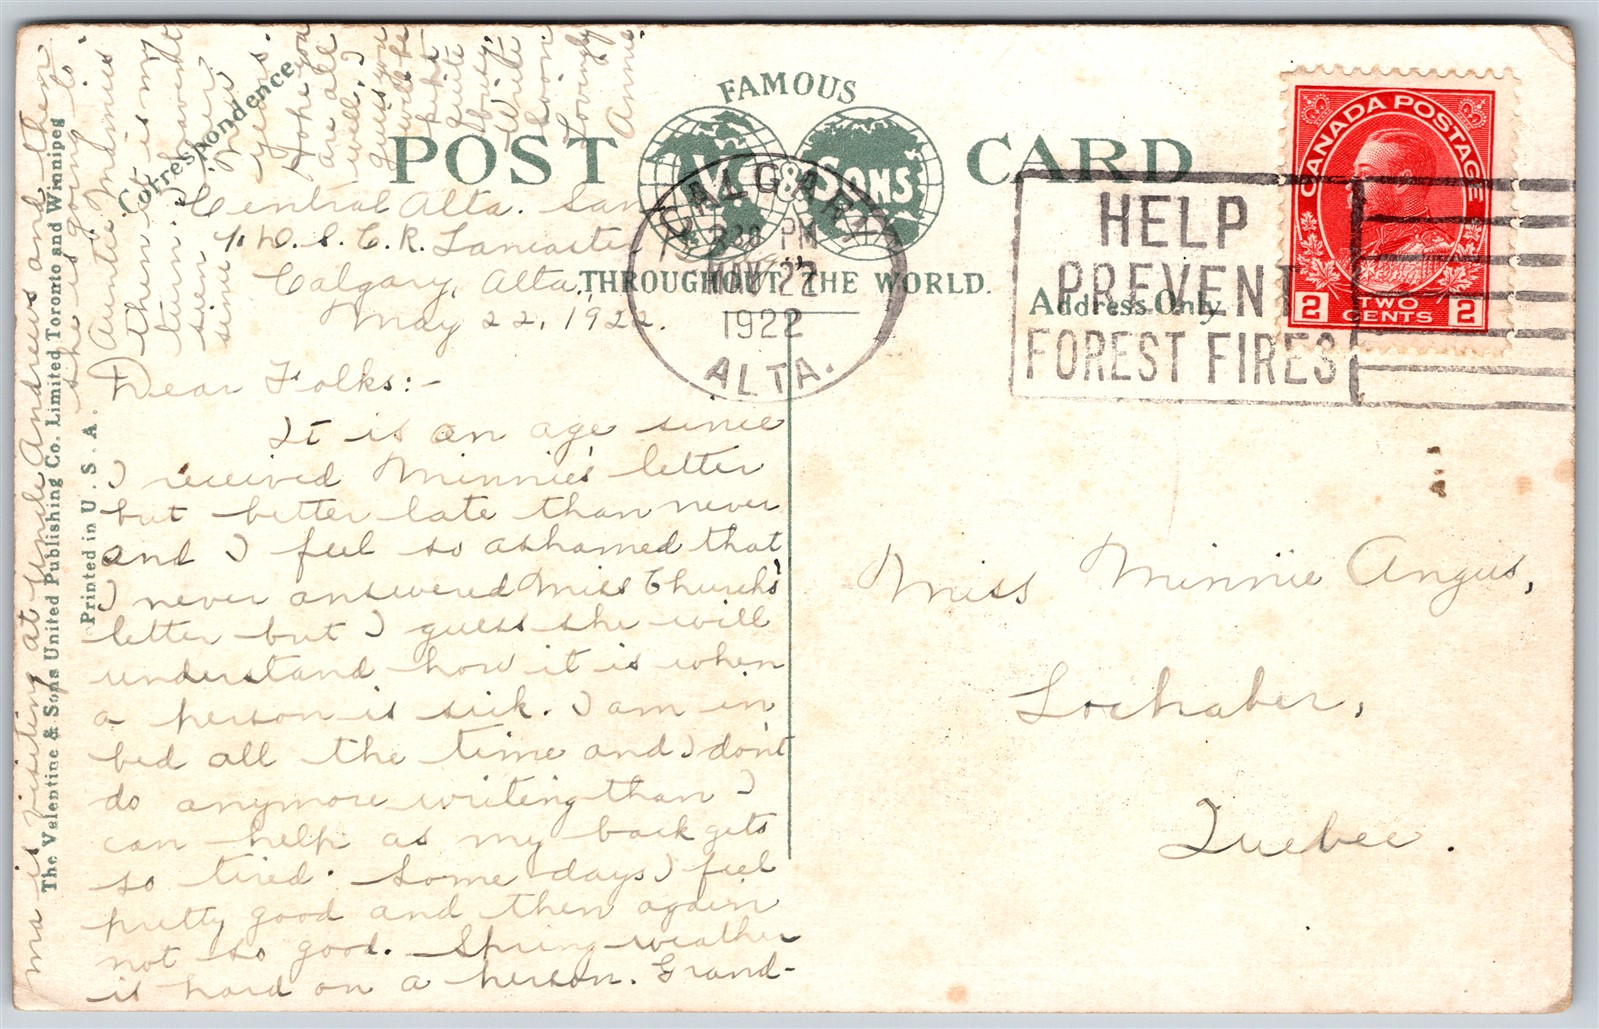 Correspondence.
FAMOUS
POST CARD
V. & SONS
THROUGHOUT THE WORLD.
Address Only
CALGARY
30 PM
22
1922
ALTA.
HELP
PREVENT
FOREST FIRES
CANADA POSTAGE
2 TWO CENTS 2
The Valentine & Sons United Publishing Co. Limited Toronto and Winnipeg
Printed in U. S. A.
Central Alta. San
% D. S. C. R. Lancaster
Calgary, Alta.,
May 22, 1922.
Dear Folks:-
It is an age since
I received Minnie's letter
but better late than never
and I feel so ashamed that
I never answered Miss Church's
letter but I guess she will
understand how it is when
a person is sick. I am in
bed all the time and I don't
do anymore writing than I
can help as my back gets
so tired. Some days I feel
pretty good and then again
not so good. Spring weather
is hard on a person. Grand-
ma is visiting at Uncle Andrews and then
she is going to
Auntie
then it is my
turn. I
haven't
seen her
since
years.
Hope you
are all
well. I
guess you
will be
quite
busy.
Write
soon.
Lovingly
Annie.
Miss Minnie Angus,
Lochaber,
Quebec.